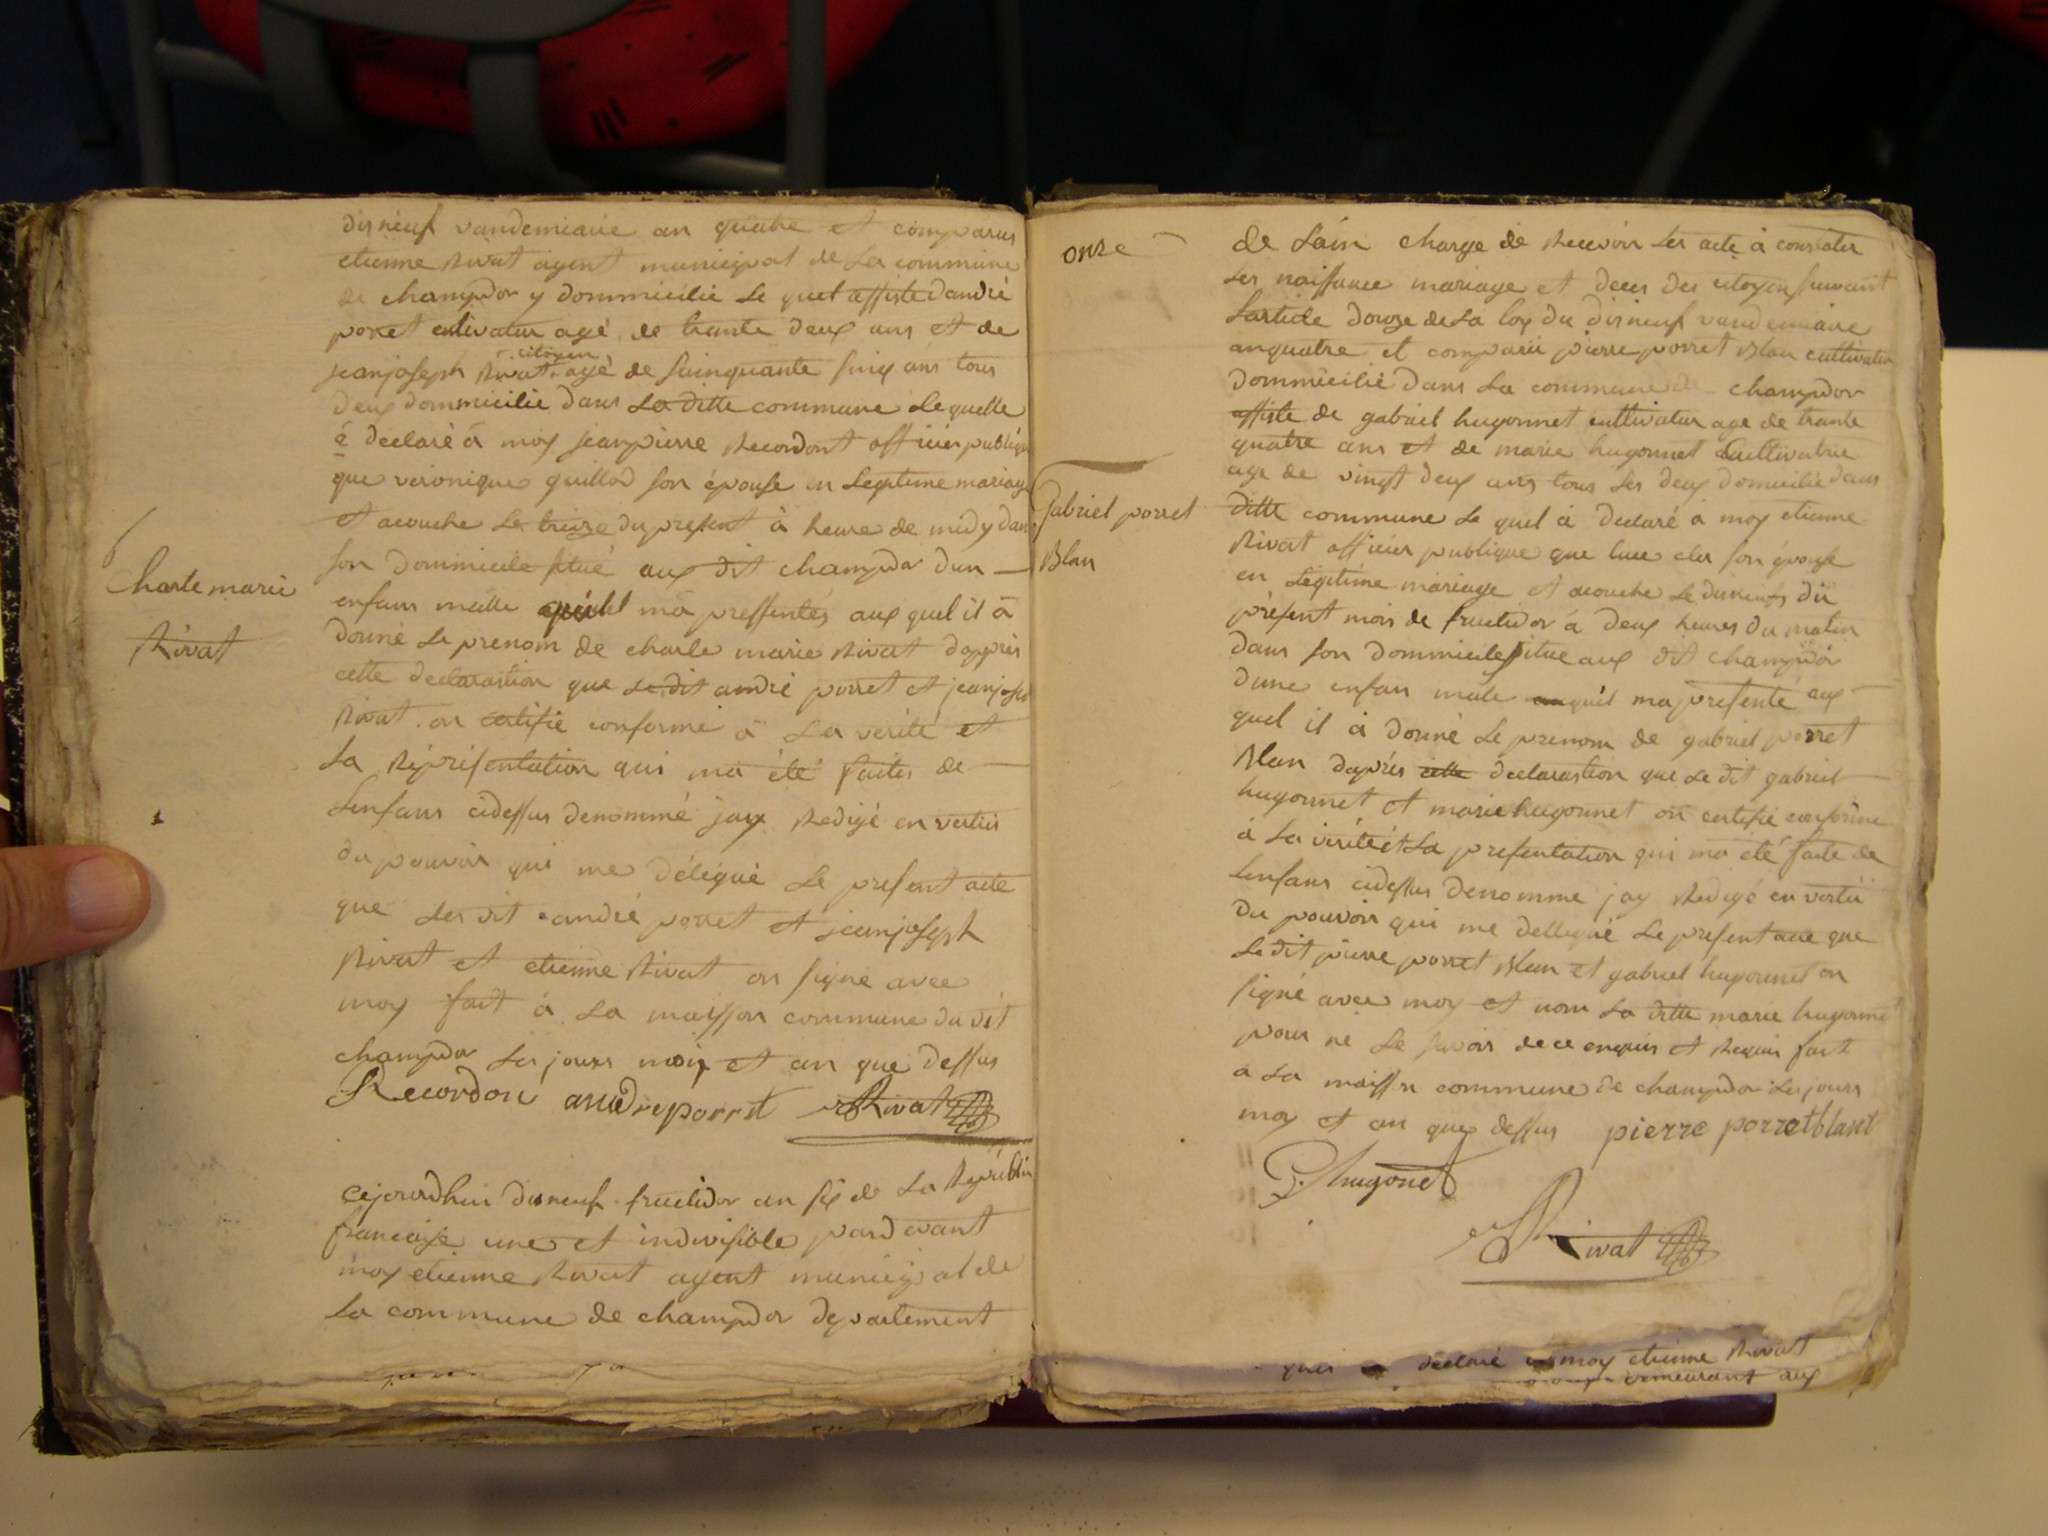 disneuf vandemiaire an quatre et comparus
etienne Rivat agent municipal de La commune
de champdor y dommicilie Le quel assiste dandré
porret cultivatur agé de trante deux ans et de
jeanjoseph Rivat citoyen agé de sainquante sinq ans tous
deux dommicilie dans La ditte commune Le quelle
á declaré á moy jeanpierre Recordont officier publiq
que veronique guillod son épouse en Legitime mariage
et acouche Le treize du present à heure de midy dans
Charle marie
Rivat
son dommicile situé aux dit champdor dun
enfans mâlle quil mâ pressentés aux quel il à
donné Le prenom de charle marie Rivat dapprès
cette declarastion que Le dit andré porret et jeanjosep
Rivat on certifié conforme à La vérité et
La Réprésentation qui ma été faites de
Lenfans cidessus denommé jay Redigé en vertus
du pouvoir qui me délégué Le present acte
que Les dit andré porret et jeanjoseph
Rivat et etienne Rivat on signe avec
moy fait à La maisson commune du dit
champdor Les jours mois et an que dessus
Recordon andre porret Rivat
cejourdhui disneuf fructidor an six de La Republiq
francaise une et indivisible pardevant
moy etienne Rivat agent municipal de
La commune de champdor departement
onze
de Lain charge de Recevoir Les acte à constater
Les naissance mariage et deces des citoyen suivant
Larticle douze de La loy du disneuf vandemiaire
anquatre et comparu pierre porret Blan cultivatur
dommicilié dans La commune de champdor
assiste de gabriel hugonnet cultivatur age de trante
quatre ans et de marie hugonnet Cultivatrice
age de vingt deux ans tous Les deux domicilié dans
Gabriel porret
Blan
ditte commune Le quel à declaré à moy etienne
Rivat officier publique que son épouse
en Légitime mariage et acouche Le disneufs du
présent mois de fructidor á deux heures du matin
dans son dommicile situe aux dit champdor
dune enfans male quil ma presenté aux
quel il à donné Le prenom de gabriel porret
Blan daprés cette declarastion que Le dit gabriel
hugonnet et marie hugonnet on certifié conforme
à La vérité et La presentation qui ma été faite de
Lenfans cidessus denomme jay Redigé en vertu
du pouvoir qui me dellegué Le present acte que
Le dit pierre porret Blan et gabriel hugonnet on
signé avec moy et nom La ditte marie hugonnet
pour ne Le savoir de ce enquis et Requis fait
a La maisson commune de champdor Les jours
moy et an que dessus pierre porretblant
G. hugonet
Rivat
declaré moy etienne Rivat
demeurant aux